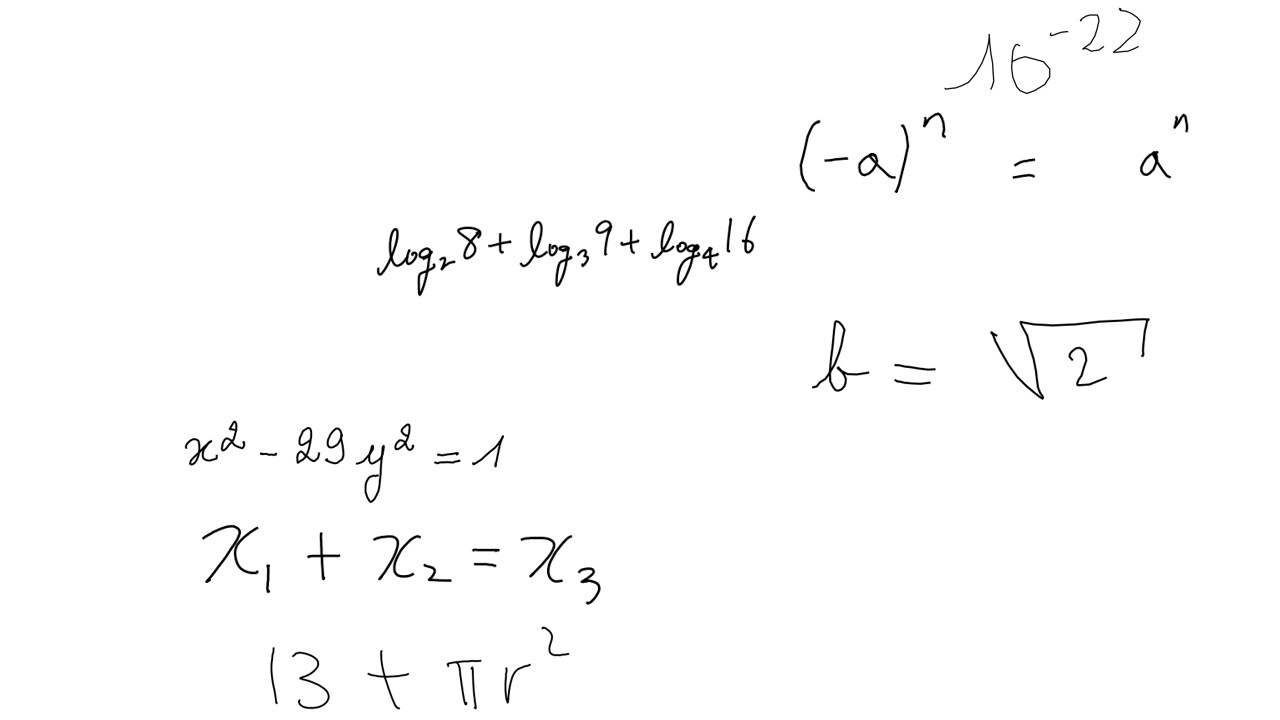 16^{-22}
(-a)^n = a^n
log_2 8 + log_3 9 + log_4 16
b = \sqrt{2}
x^2 - 29y^2 = 1
x_1 + x_2 = x_3
13 + πr^2